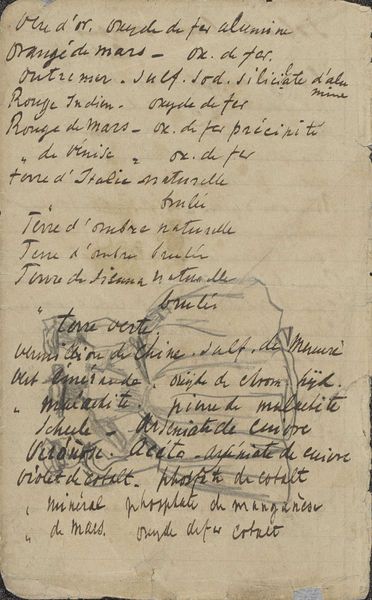 Ocre d'or. oxyde de fer alumine
Orangé de mars - ox. de fer.
outremer - sulf. sod. siliciate d'alu
mine
Rouge Indien. oxyde de fer
Rouge de Mars - ox. de fer précipité
" de Venise " ox. de fer
terre d'Italie naturelle
" brulée
Terre d'ombre naturelle
Terre d'ombre brulée
Terre de Sienna naturelle
brulée
" terre verte
Vermillion de Chine. sulf. de Mercure
Vert émeraude. oxyde de chrom. hyd.
" malachite. pierre de malachite
Scheele - Arséniate de cuivre
Véronèse. Acéto-arséniate de cuivre
Violet de Cobalt. phosphte de cobalt
" minéral phosphate de manganèse
" de Mars. oxyde de fer cobalt